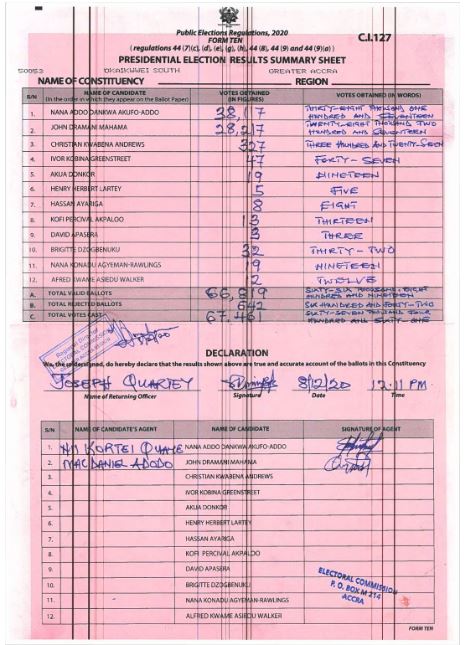 Public Elections Regulations, 2020
FORM TEN
C.I.127
( regulations 44 (7)(c), (d), (e), (g), (h), 44 (8), 44 (9) and 44(9)(a) )
PRESIDENTIAL ELECTION RESULTS SUMMARY SHEET
OKAIKWEI SOUTH GREATER ACCRA
NAME OF CONSTITUENCY REGION
S/N NAME OF CANDIDATE (In the order in which they appear on the Ballot Paper) VOTES OBTAINED (IN FIGURES) VOTES OBTAINED (IN WORDS)
1. NANA ADDO DANKWA AKUFO-ADDO 38,117 THIRTY-EIGHT THOUSAND ONE HUNDRED AND SEVENTEEN
2. JOHN DRAMANI MAHAMA 28,217 TWENTY-EIGHT THOUSAND TWO HUNDRED AND SEVENTEEN
3. CHRISTIAN KWABENA ANDREWS 327 THREE HUNDRED AND TWENTY-SEVEN
4. IVOR KOBINA GREENSTREET 47 FORTY-SEVEN
5. AKUA DONKOR 19 NINETEEN
6. HENRY HERBERT LARTEY 5 FIVE
7. HASSAN AYARIGA 8 EIGHT
8. KOFI PERCIVAL AKPALOO 13 THIRTEEN
9. DAVID APASERA 3 THREE
10. BRIGITTE DZOGBENUKU 32 THIRTY-TWO
11. NANA KONADU AGYEMAN-RAWLINGS 19 NINETEEN
12. ALFRED KWAME ASIEDU WALKER 12 TWELVE
A. TOTAL VALID BALLOTS 66,819 SIXTY-SIX THOUSAND, EIGHT HUNDRED AND NINETEEN
B. TOTAL REJECTED BALLOTS 642 SIX HUNDRED AND FORTY-TWO
C. TOTAL VOTES CAST 67,461 SIXTY-SEVEN THOUSAND FOUR HUNDRED AND SIXTY-ONE
DECLARATION
We, the undersigned, do hereby declare that the results shown above are true and accurate account of the ballots in this Constituency
JOSEPH QUARTEY 8/12/20 12:11 PM
Name of Returning Officer Signature Date Time
S/N NAME OF CANDIDATE'S AGENT NAME OF CANDIDATE SIGNATURE OF AGENT
1. KORTEI QUAYE NANA ADDO DANKWA AKUFO-ADDO
2. MACDANIEL ADODO JOHN DRAMANI MAHAMA
3. CHRISTIAN KWABENA ANDREWS
4. IVOR KOBINA GREENSTREET
5. AKUA DONKOR
6. HENRY HERBERT LARTEY
7. HASSAN AYARIGA
8. KOFI PERCIVAL AKPALOO
9. DAVID APASERA
10. BRIGITTE DZOGBENUKU
11. NANA KONADU AGYEMAN-RAWLINGS
12. ALFRED KWAME ASIEDU WALKER
ELECTORAL COMMISSION
P. O. BOX M 214
ACCRA
FORM TEN